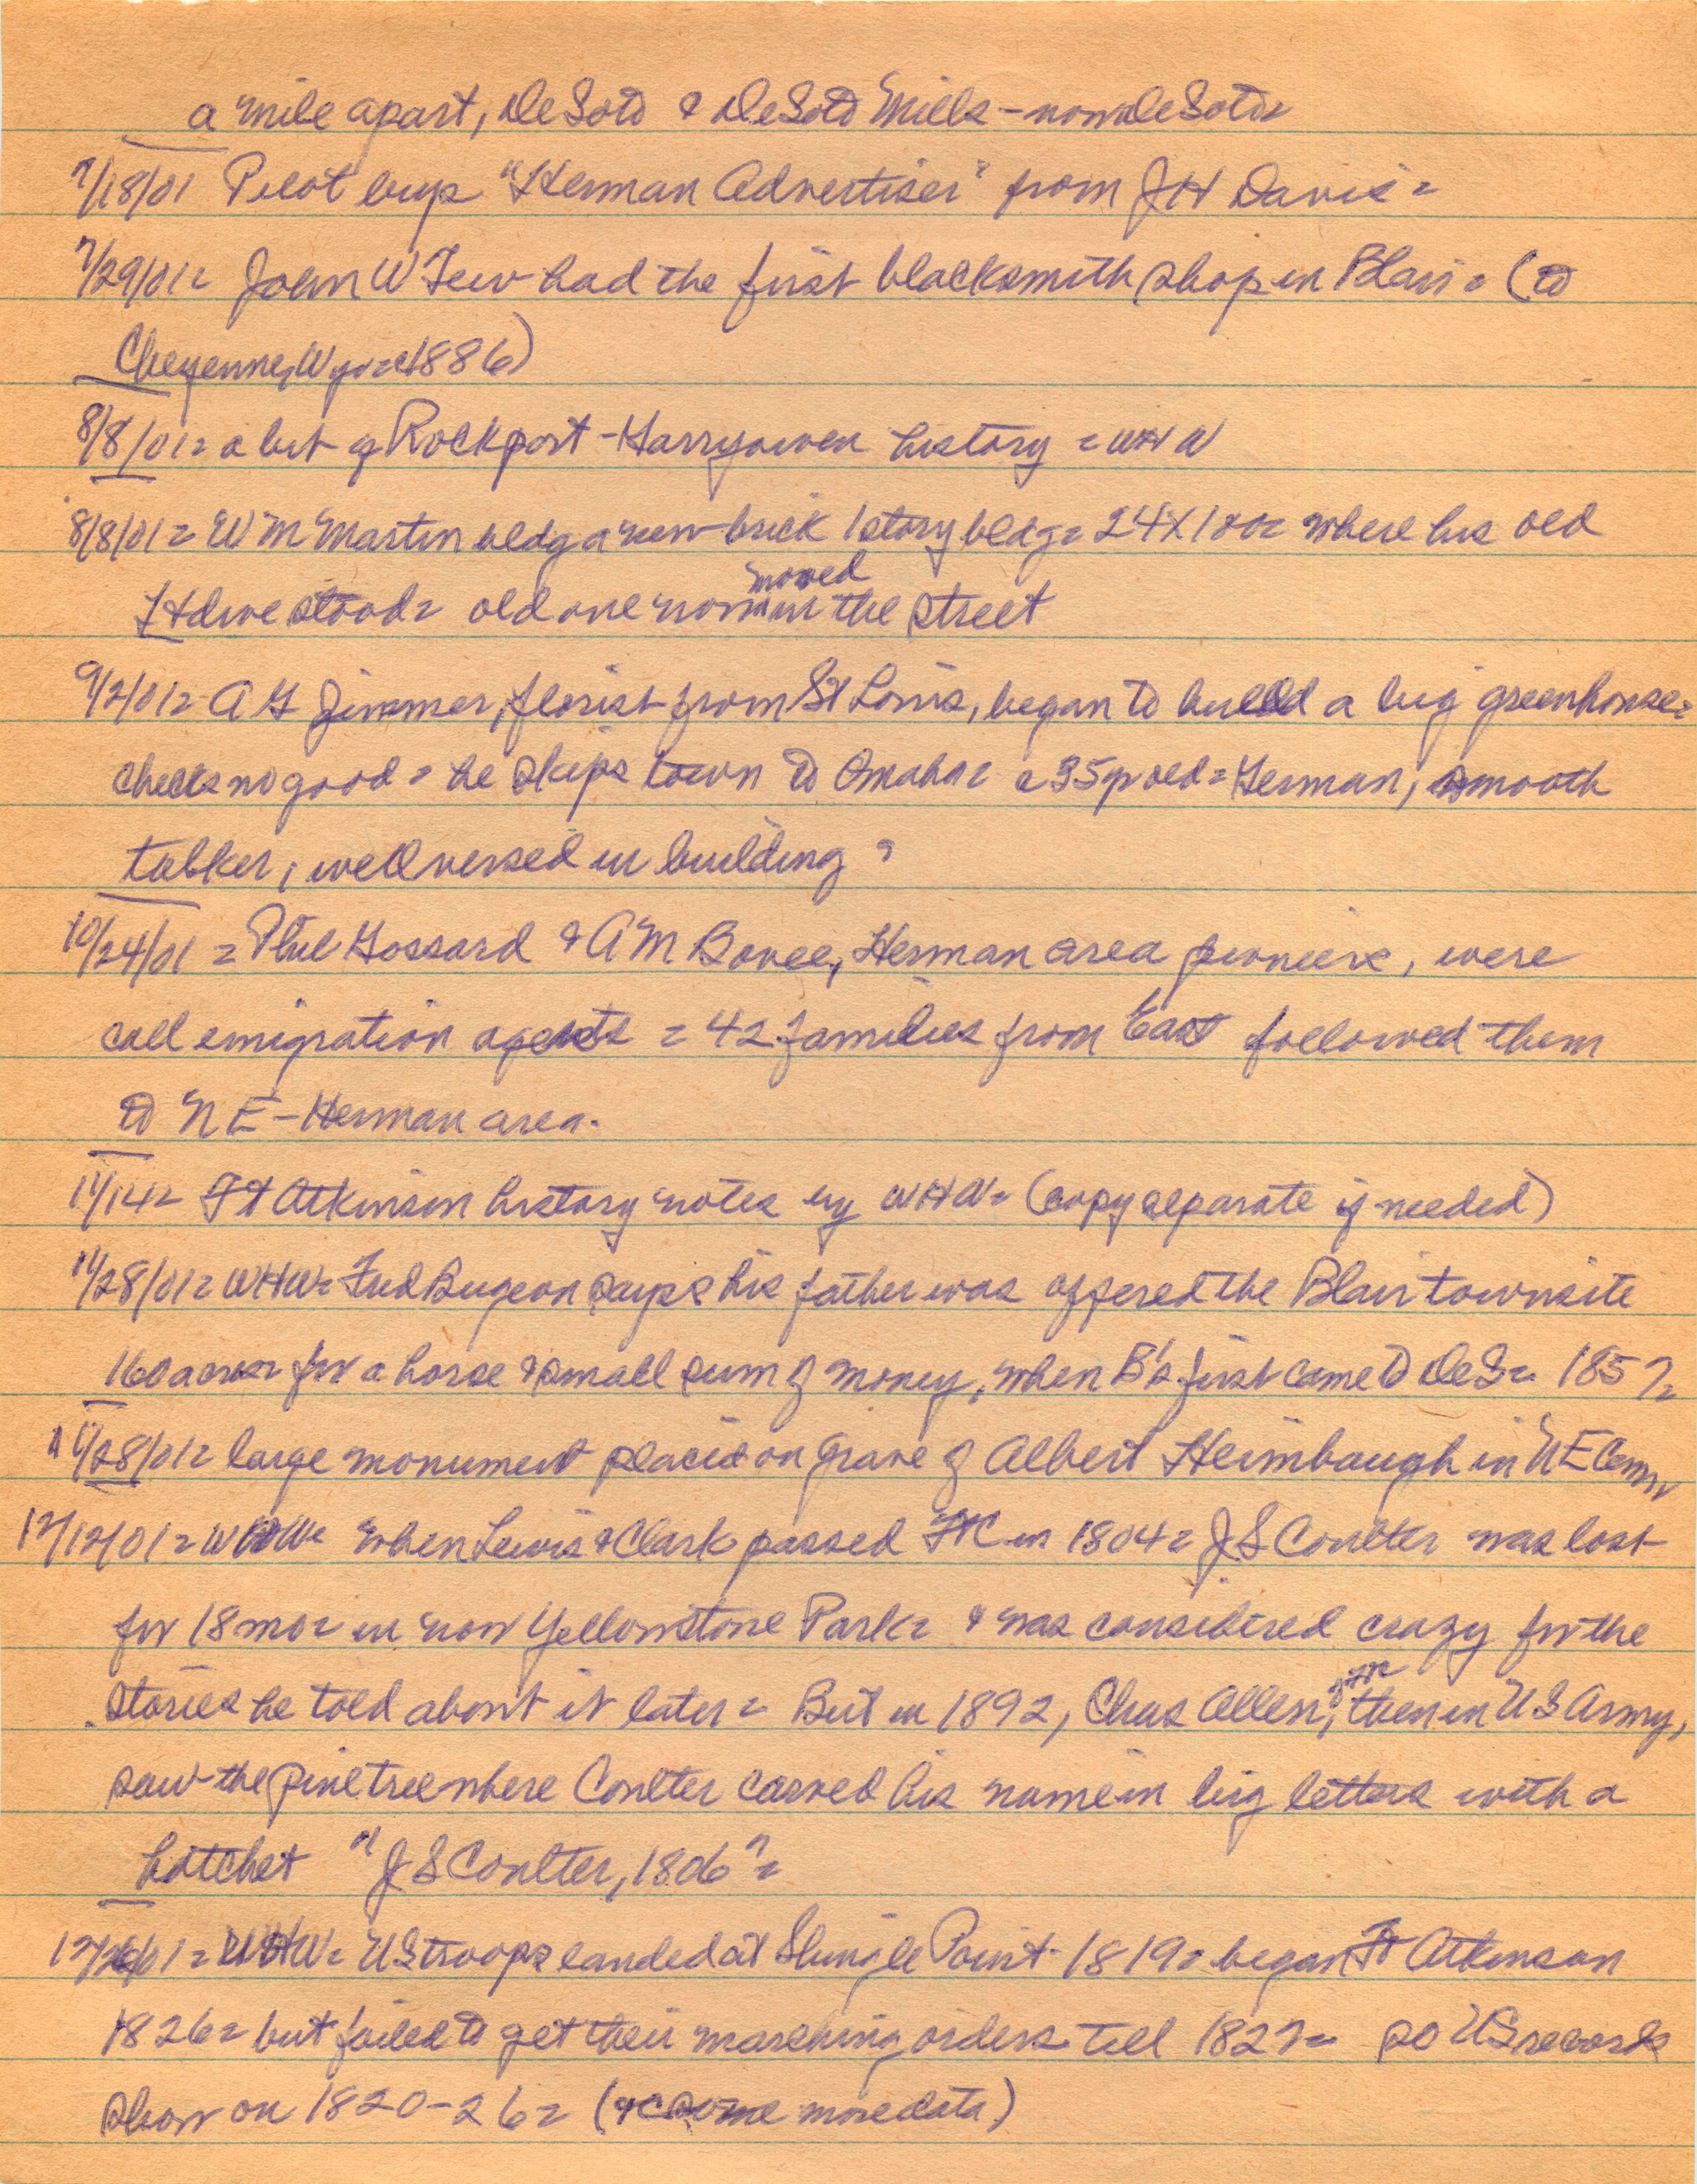 a mile apart, DeSoto & DeSoto Mills - now DeSoto =
7/18/01 Pilot buys "Herman Advertiser" from J H Davis =
7/29/01 = John W Tew had the first blacksmith shop in Blair = (to
Cheyenne, Wyo = c1886)
8/8/01 = a bit of Rockport - Garryowen history = WHW
8/8/01 = W M Martin bldg a new brick 1 story bldg = 24X100 = where his old
Hdwe stood = old one now moved in the street
9/2/01 = A G Zimmer, florist from St Louis, began to build a big greenhouse =
checks no good = he skips town to Omaha = c35 yr old = German, smooth
talker, well versed in building =
10/24/01 = Phil Gossard & A M Bovee, Herman area pioneers, were
call emigration agents = 42 families from East followed them
to NE - Herman area.
11/14 = Ft Atkinson history notes by WHW = (copy separate if needed)
11/28/01 = WHW = Fred Bugeon says his father was offered the Blair townsite
160 acres for a horse & small sum of money, when B's first came to DeS = 1857 =
11/28/01 = large monument placed on grave of Albert Heimbaugh in NE Cem =
12/12/01 = WHW = when Lewis & Clark passed FtC in 1804 = J S Coulter was lost
for 18 mo = in now Yellowstone Park = & was considered crazy for the
stories he told about it later = But in 1892, Chas Allen, of FtC then in US Army,
saw the pine tree where Coulter carved his name in big letters with a
hatchet "J S Coulter, 1806" =
12/26/01 = WHW = US troops landed at Shingle Point 1819 = began Ft Atkinson
1826 = but failed to get their marching orders till 1827 = so US records
show on 1820-26 = (& some more data)